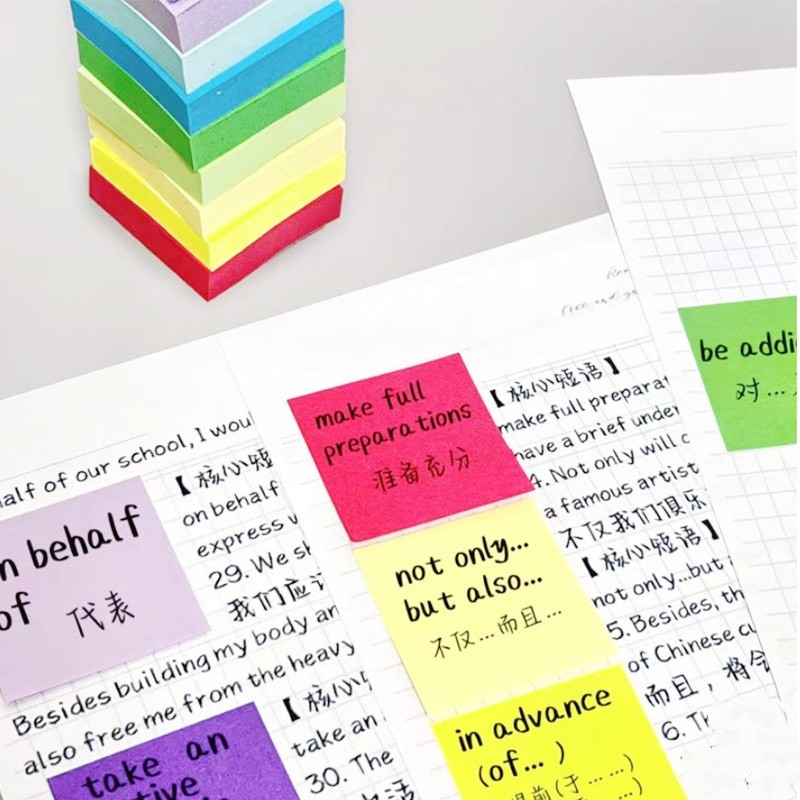 half of our school, I woul
【核心短
on behalf
express w
29. We sh
我们应该
n behalf
of
代表
Besides building my body an
also free me from the heavy
【核心短
take an
30. The
生活
take an
tive
make full
preparations
准备充分
【核心短语】
make full preparat
have a brief under
4. Not only will o
a famous artist
不仅我们俱乐
【核心短语】
not only...but
5. Besides, th
of Chinese cu
而且，将会
6. Th
not only...
but also...
不仅...而且...
in advance
(of... )
提前(于... ...)
be addi
对...